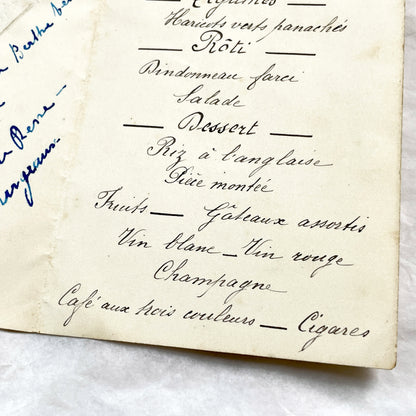 Légumes
Haricots verts panachés
— Rôti —
Dindonneau farci
Salade
— Dessert —
Riz à l'anglaise
Pièce montée
Fruits — Gâteaux assortis
Vin blanc — Vin rouge
Champagne
Café aux trois couleurs — Cigares
Berthe